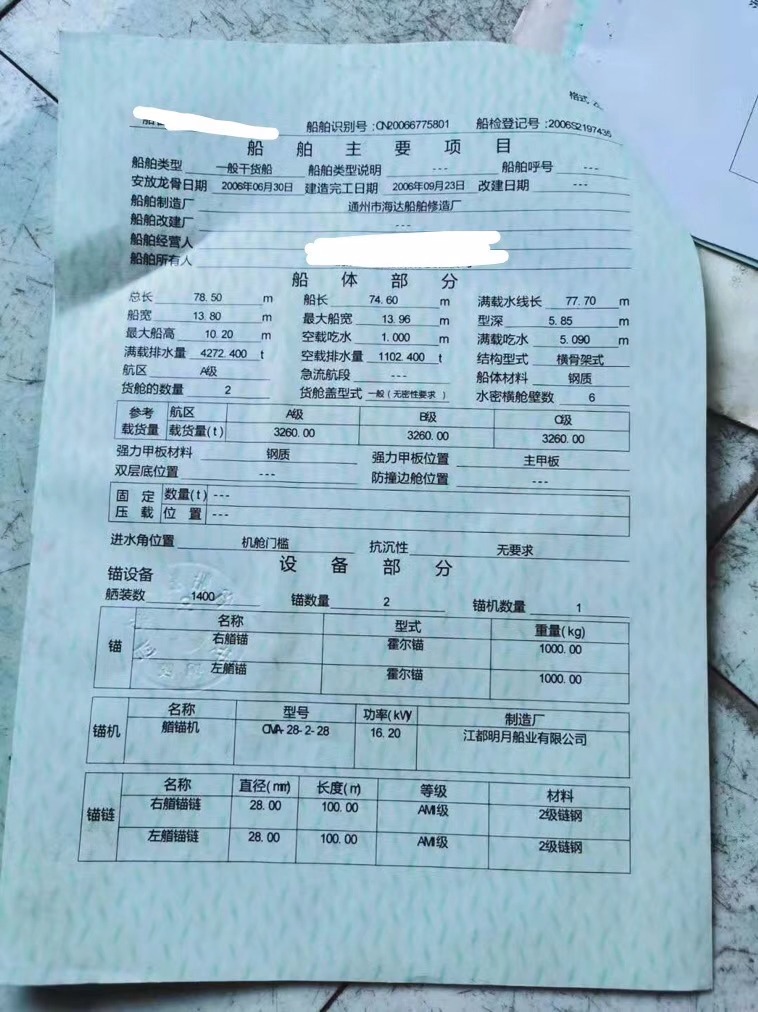 格式
船舶识别号:CN20066775801 船检登记号:2006S2197435
船舶主要项目
船舶类型 一般干货船 船舶类型说明 --- 船舶呼号 ---
安放龙骨日期 2006年06月30日 建造完工日期 2006年09月23日 改建日期 ---
船舶制造厂 通州市海达船舶修造厂
船舶改建厂 ---
船舶经营人
船舶所有人
船体部分
总长 78.50 m 船长 74.60 m 满载水线长 77.70 m
船宽 13.80 m 最大船宽 13.96 m 型深 5.85 m
最大船高 10.20 m 空载吃水 1.000 m 满载吃水 5.090 m
满载排水量 4272.400 t 空载排水量 1102.400 t 结构型式 横骨架式
航区 A级 急流航段 --- 船体材料 钢质
货舱的数量 2 货舱盖型式 一般(无密性要求) 水密横舱壁数 6
参考 航区 A级 B级 C级
载货量 载货量(t) 3260.00 3260.00 3260.00
强力甲板材料 钢质 强力甲板位置 主甲板
双层底位置 --- 防撞边舱位置 ---
固定 数量(t) ---
压载 位置 ---
进水角位置 机舱门槛 抗沉性 无要求
设备部分
锚设备
舾装数 1400 锚数量 2 锚机数量 1
锚 名称 型式 重量(kg)
右艏锚 霍尔锚 1000.00
左艏锚 霍尔锚 1000.00
锚机 名称 型号 功率(kW) 制造厂
艏锚机 CMA-28-2-28 16.20 江都明月船业有限公司
锚链 名称 直径(mm) 长度(m) 等级 材料
右艏锚链 28.00 100.00 AM1级 2级链钢
左艏锚链 28.00 100.00 AM1级 2级链钢